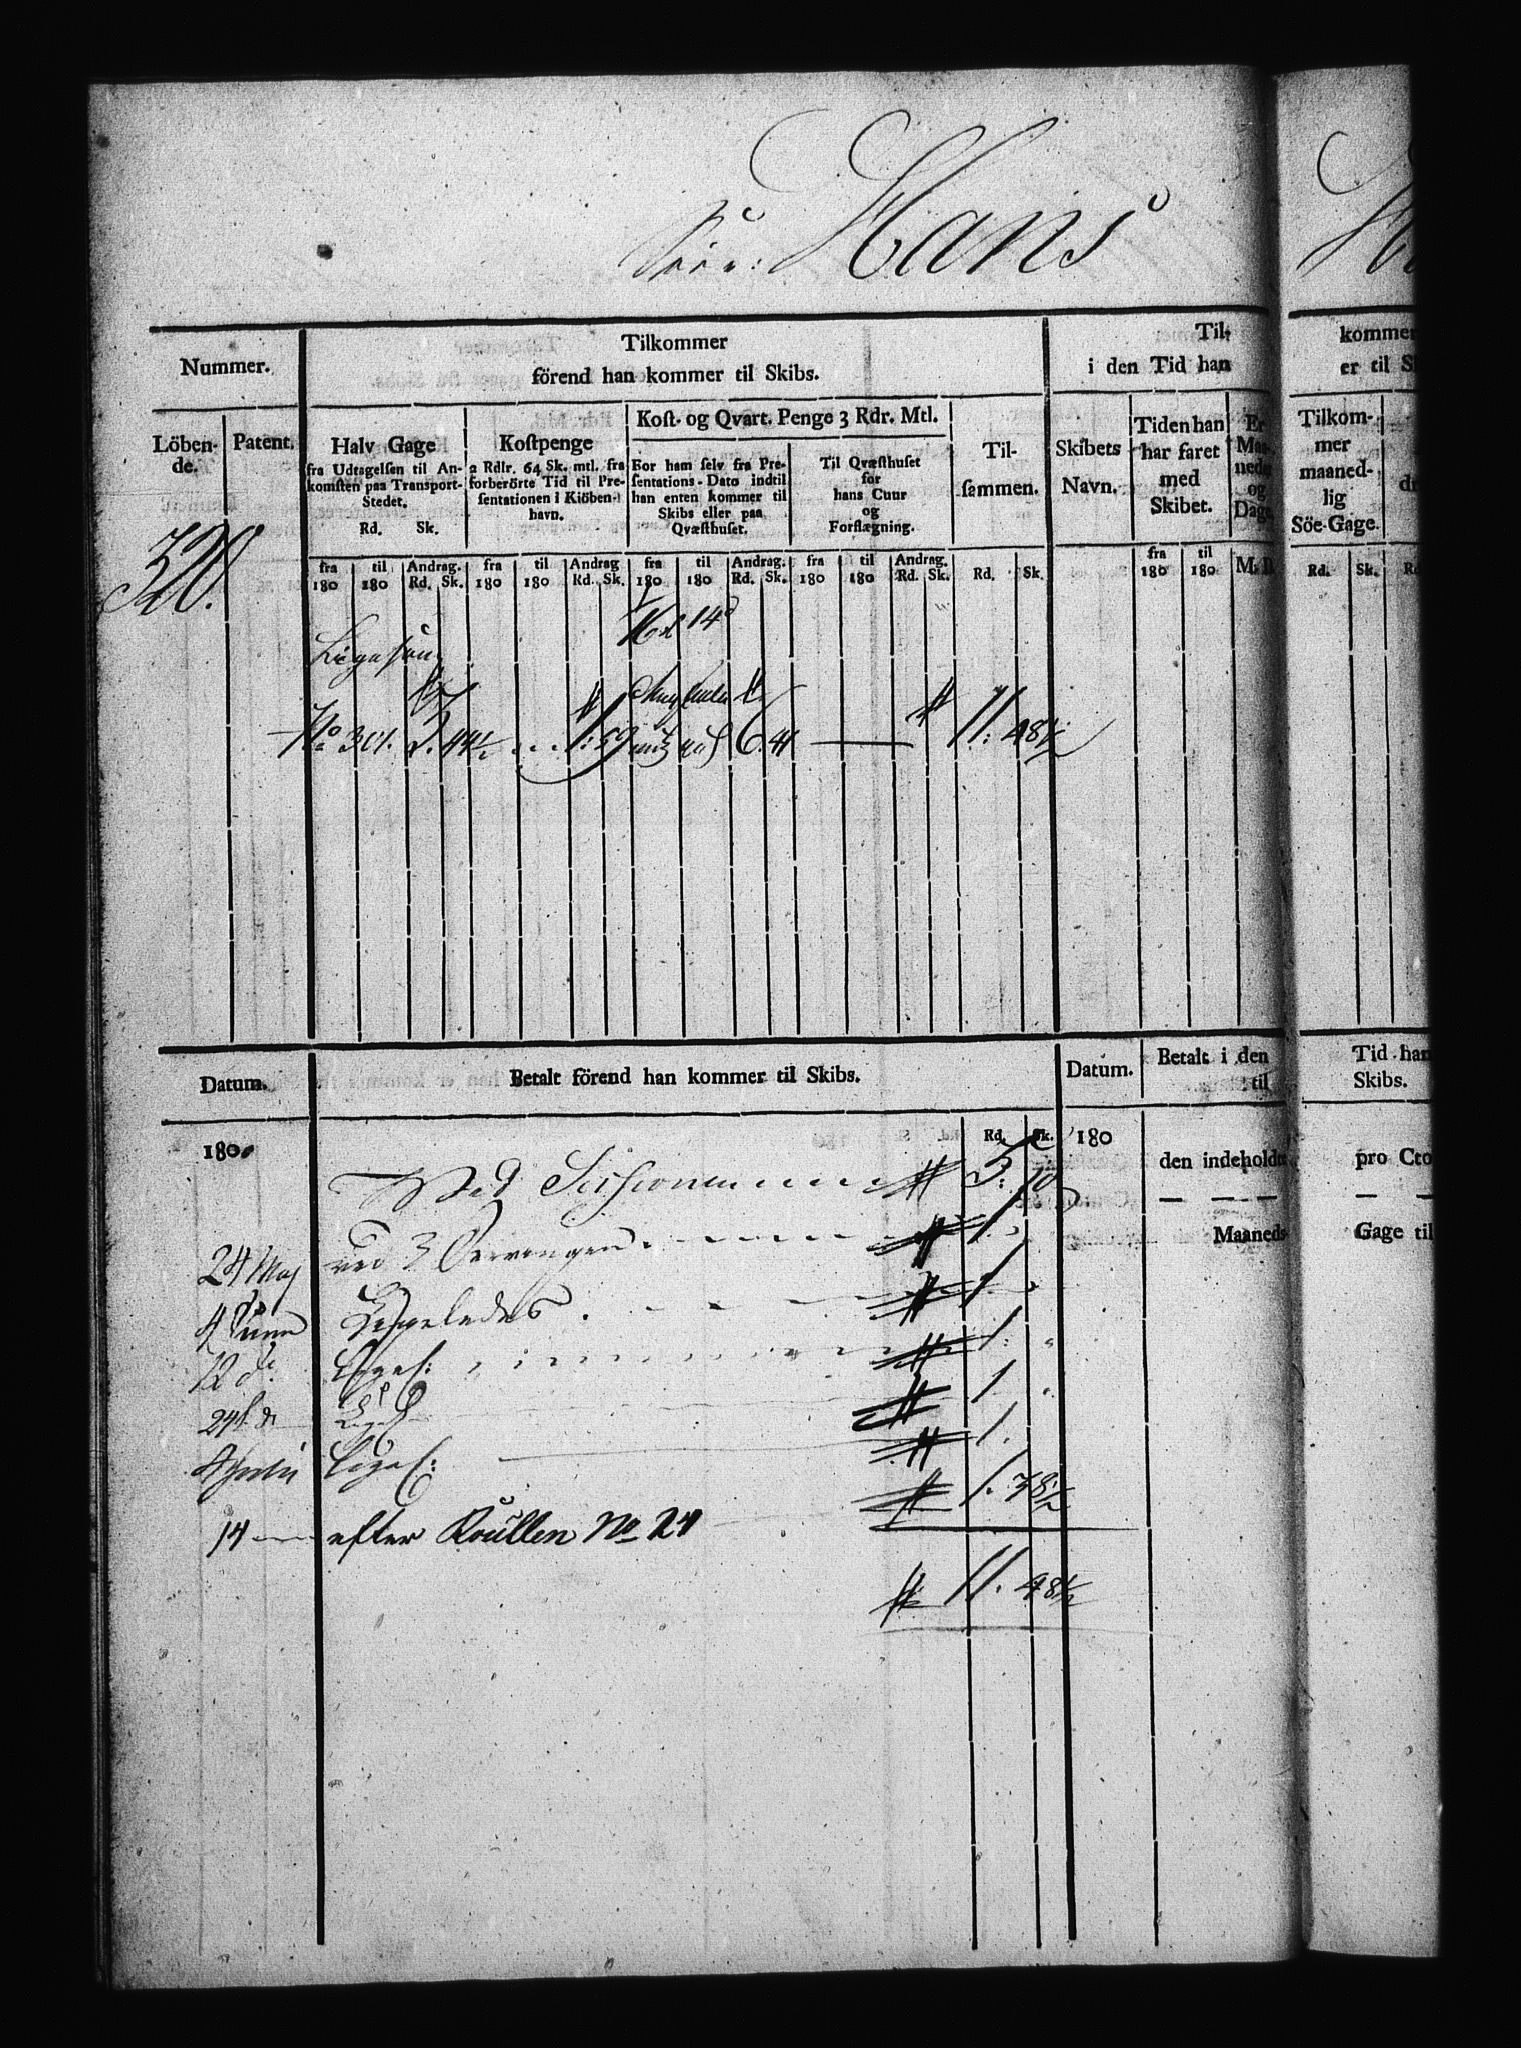 Hans
Nummer.
Tilkommer
förend han kommer til Skibs.
Til-
i den Tid han
kommer
er til S
Löben-
de.
Patent.
Halv Gage
fra Udtagelsen til An-
komsten paa Transport-
Stedet.
Rd. Sk.
Kostpenge
2 Rdlr. 64 Sk. mtl. fra
forberörte Tid til Pre-
sentationen i Kiöben-
havn.
Kost- og Qvart. Penge 3 Rdr. Mtl.
For ham selv fra Pre-
sentations-Dato indtil
han enten kommer til
Skibs eller paa
Qvæsthuset.
Til Qvæsthuset
for
hans Cuur
og
Forflægning.
Til-
sammen.
Skibets
Navn.
Tiden han
har faret
med
Skibet.
Er
Maa-
neder
og
Dage
Tilkom-
mer
maaned-
lig
Söe-Gage.
fra 180 til 180 Andrag. Rd. Sk. fra 180 til 180 Andrag Rd. Sk. fra 180 til 180 Andrag. Rd. Sk. fra 180 til 180 Andrag. Rd. Sk. Rd. Sk. fra 180 til 180 M. D. Rd. Sk. Rd
320.
14d
Ligesom
No 301. 3. 44½ 1: 59 6. 41 11: 48½
Datum.
Betalt förend han kommer til Skibs.
Datum.
Betalt i den
til
Tid han
Skibs.
180
Rd. Sk.
180
den indeholdte
pro Cto
Ved Sessionen 5: 10
Maaneds-
Gage til
24 Maj ved 3 1.
4 Juni Ligeledes 1.
12 do. Ligel: 1:
24 d Ligel 1.
Ligel: 1.
14 efter Roullen No 24 1. 38½
11. 48½